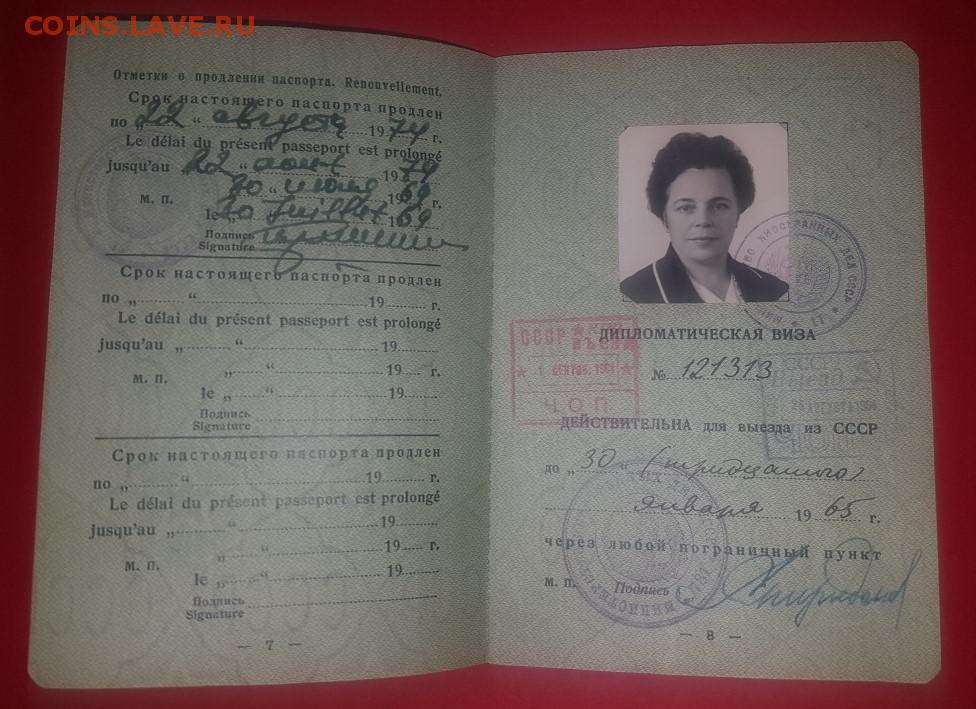 COINS.LAVE.RU
Отметки о продлении паспорта. Renouvellement.
Срок настоящего паспорта продлен
по „22“ августа 1974 г.
Le délai du présent passeport est prolongé
jusqu'au 22 “ août 1974
30 “ июля 1969 г.
м. п.
le „30 Juillet 1969
Подпись
Signature
Срок настоящего паспорта продлен
по „ “ 19 г.
Le délai du présent passeport est prolongé
jusqu'au „ “ 19
„ “ 19 г.
м. п.
le „ “ 19
Подпись
Signature
Срок настоящего паспорта продлен
по „ “ 19 г.
Le délai du présent passeport est prolongé
jusqu'au „ “ 19
„ “ 19 г.
м. п.
le „ “ 19
Подпись
Signature
— 7 —
ИНОСТРАННЫХ ДЕЛ СССР
11
ДИПЛОМАТИЧЕСКАЯ ВИЗА
№ 121313
СССР
1 СЕНТЯБ. 1964
ЧОП
СССР
Выезд
1964
ДЕЙСТВИТЕЛЬНА для выезда из СССР
до „30“ (тридцатого)
января 1965 г.
через любой пограничный пункт
м. п. Подпись
— 8 —